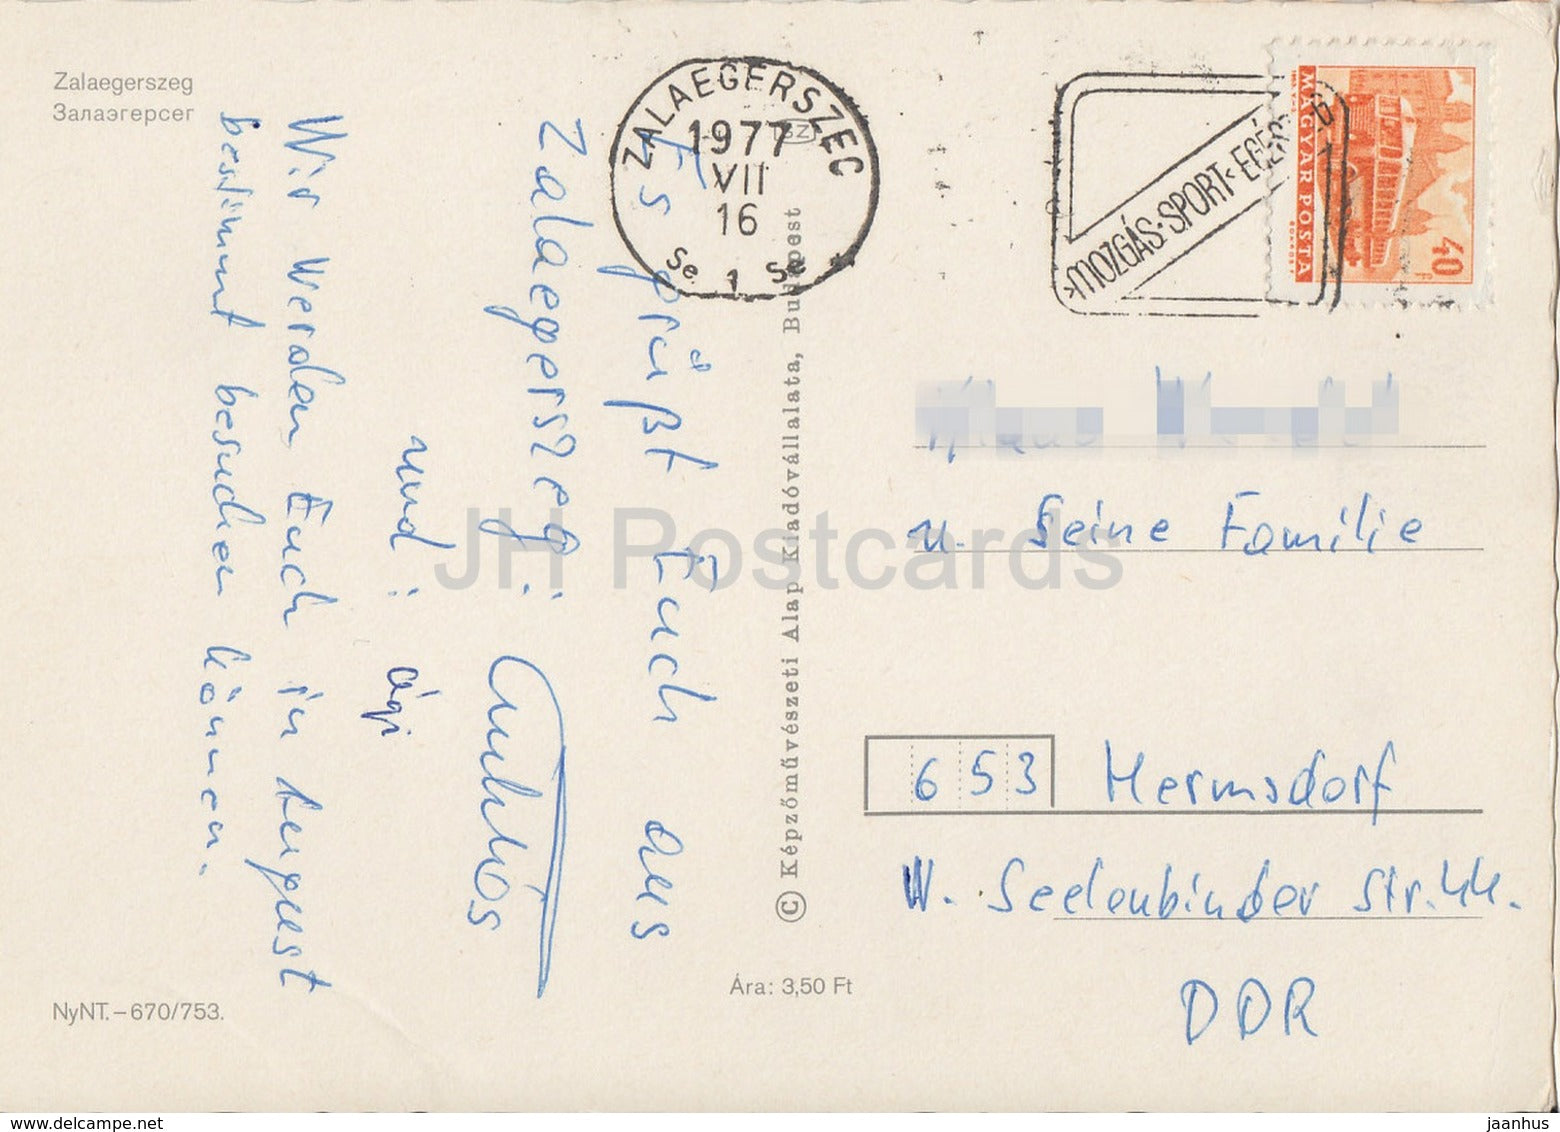 Zalaegerszeg
Залаэгерсег
Es grüßt Euch aus
Zalaegerszeg:
und: Ági
Wir werden Euch in August
bestimmt besuchen können.
NyNT.–670/753.
© Képzőművészeti Alap Kiadóvállalata, Budapest
Ára: 3,50 Ft
ZALAEGERSZEG
1977
VII
16
Se 1 Se
MOZGÁS·SPORT·EGÉS
MAGYAR POSTA
40 f
u. Seine Familie
653 Hermsdorf
W. Seelenbinder Str. 44.
DDR
JH Postcards
jaanhus